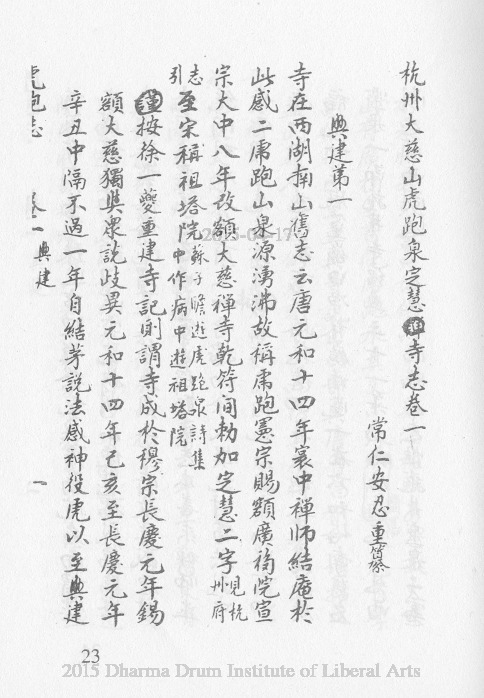 杭州大慈山虎跑泉定慧禪寺志卷一
常仁安忍重纂
興建第一
寺在西湖南山舊志云唐元和十四年寰中禪師結庵於
此感二虎跑山泉源湧沸故稱虎跑憲宗賜額廣福院宣
宗大中八年改額大慈禪寺乾符間勅加定慧二字見杭
州府
志
引至宋稱祖塔院蘇子瞻遊虎跑泉詩集
中作病中遊祖塔院
謹按徐一夔重建寺記則謂寺成於穆宗長慶元年錫
額大慈獨與眾説歧異元和十四年己亥至長慶元年
辛丑中隔不過一年自結茅説法感神役虎以至興建
虎跑志 卷一 興建 一
23
2015-04-17
2015 Dharma Drum Institute of Liberal Arts